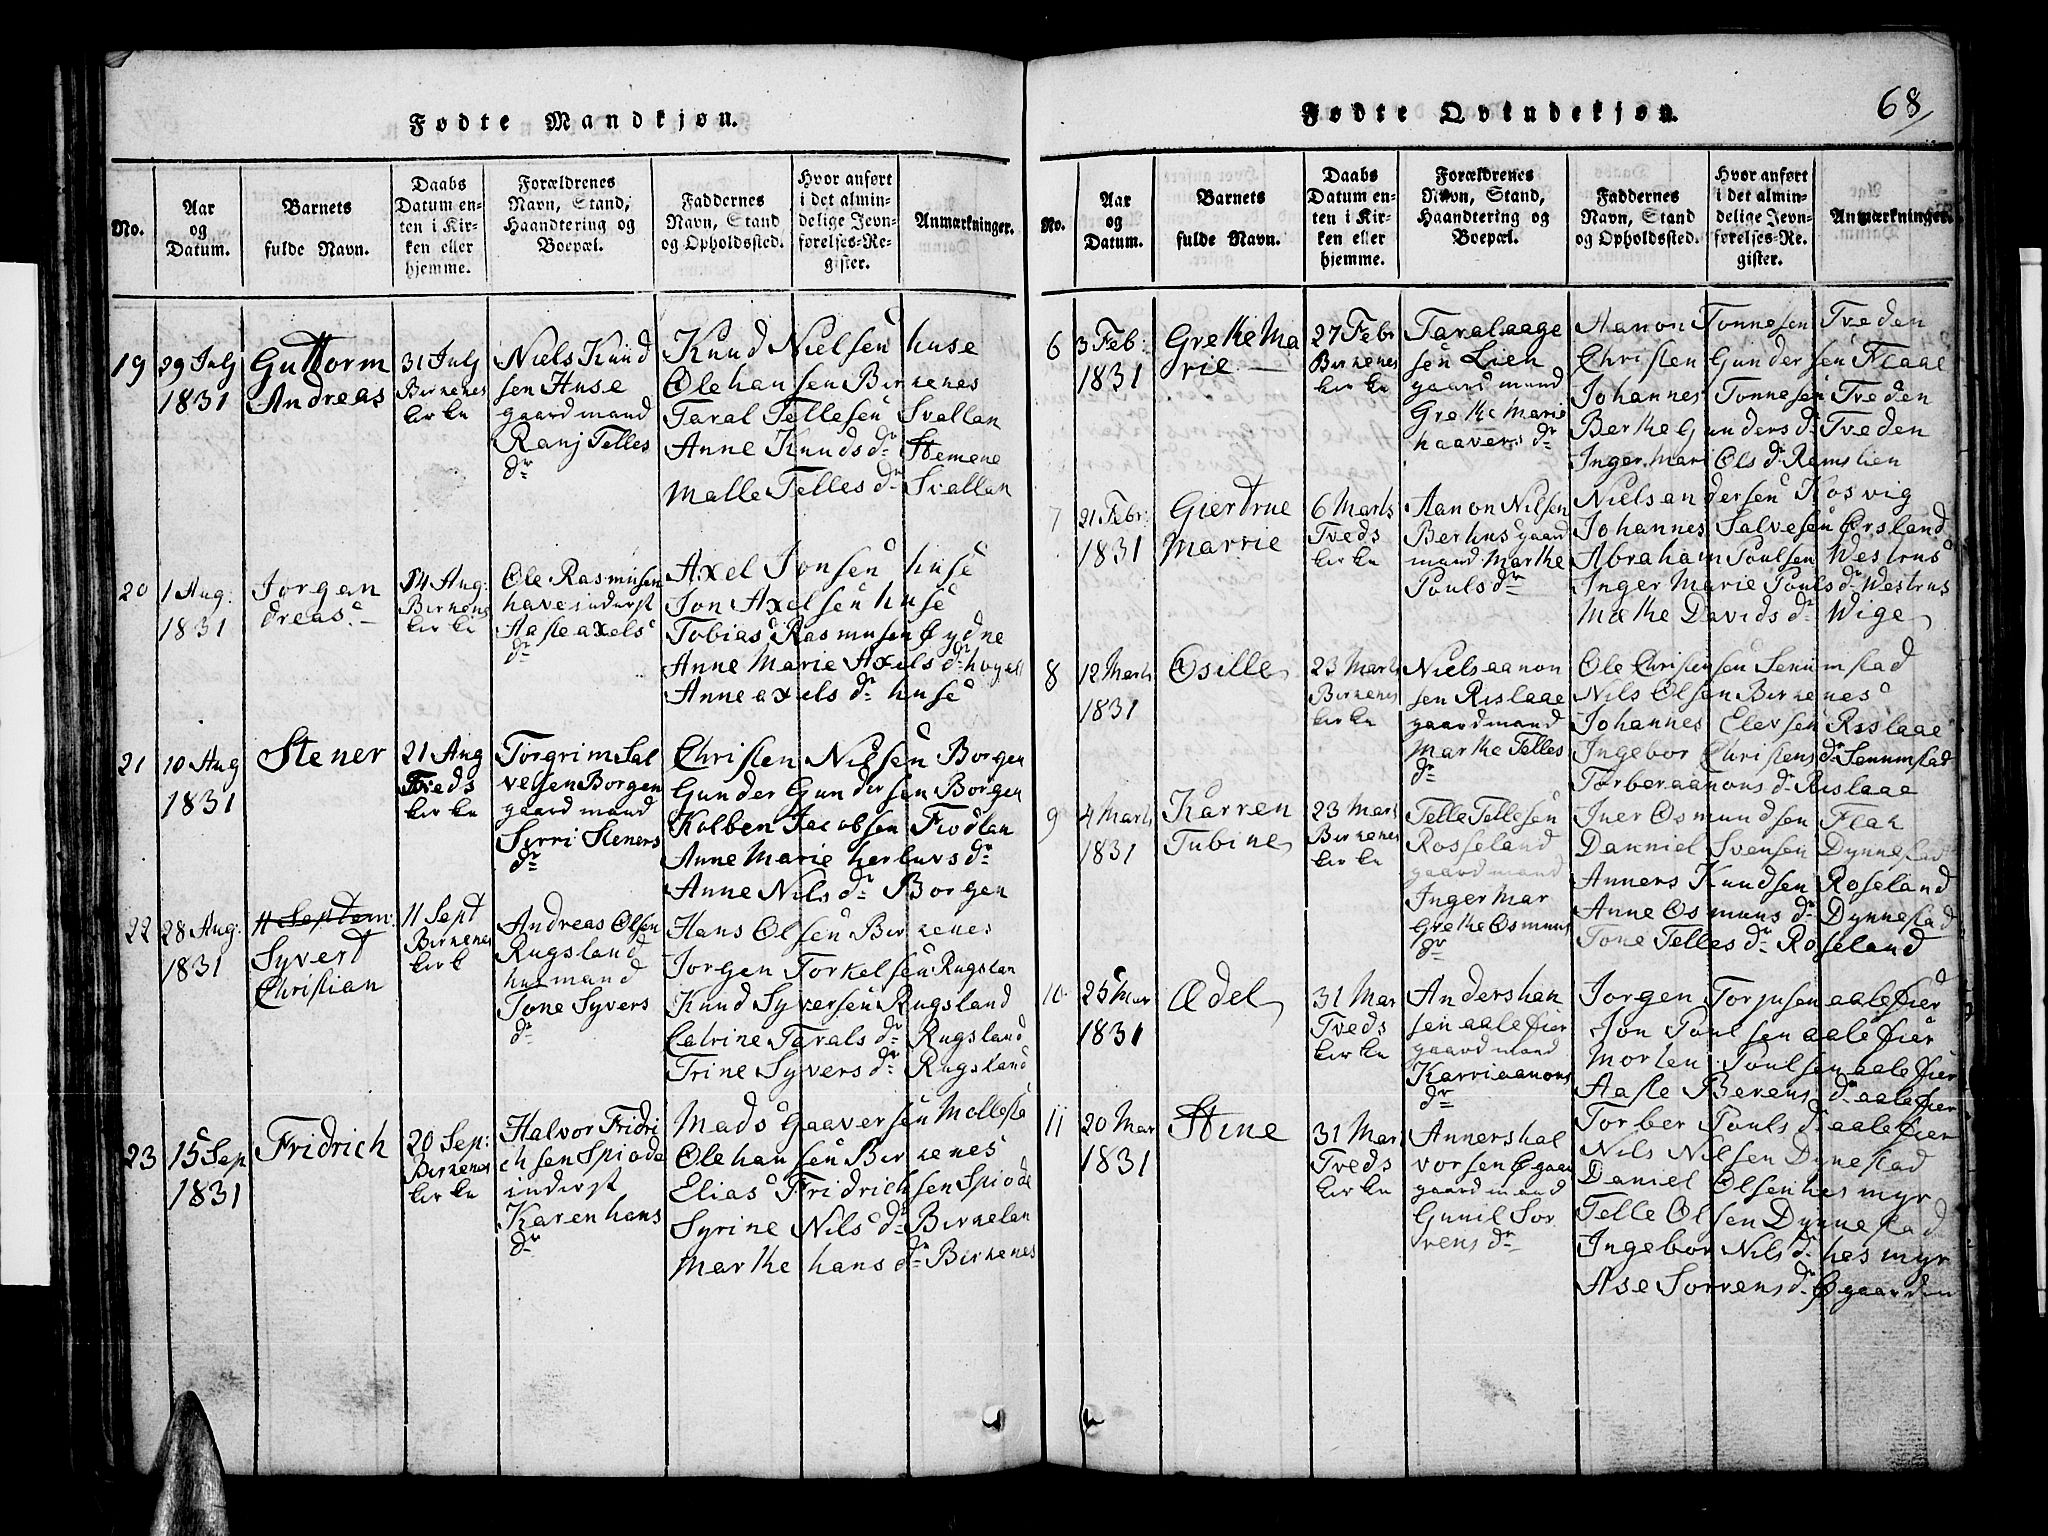 Fødte Mandkjøn.
No.
Aar
og
Datum.
Barnets
fulde Navn.
Daabs
Datum en-
ten i Kir-
ken eller
hjemme.
Forældrenes
Navn, Stand,
Haandtering og
Boepæl.
Faddernes
Navn, Stand
og Opholdssted.
Hvor anført
i det almin-
delige Jevn-
førelses-Re-
gister.
Anmærkninger.
19
29 July
1831
Guttorm
Andreas
31 July
Birkenes
kirke
Niels Knud
sen Huse
gaardmand
Ranj Telles
dr
Knud Nielsen huse
Ole hansen Birkenes
Taral Tellesen Svallan
Anne Knuds dr Stemene
Malle Telles dr Svallan
20
1 Aug.
1831
Jorgan
dreas. –
14 Aug:
Birkens
kirke
Ole Rasmusen
have inderst
Aasle axels
dr
Axel Jonsen huse
Jon Axelsen huse
Tobias Rasmusen Øydne
Anne Marie Axels dr
Anne axels dr huse
21
10 Aug
1831
Stener
21 Aug
Tveds
kirke
Torgrim Sal
vesen Borgen
gaardmand
Sirri Steners
dr
Christen Nilsen Borgen
Gunder Gundersen Borgen
Kolben Jacobsen Fiodlan
Anne Marie herluvs dr
Anne Nils dr Borgen
22
28 Aug.
1831
11 Septem.
Syvert
Christian
11 Sept
Birkenes
kirk
Andreas Olsen
Rugsland
husmand
Tone Syvers
dr
Hans Olsen Birkenes
Jorgen Torkelsen Rugslan
Knud Syversen Rugsland
Catrine Tarals dr Rugsland
Trine Syvers dr Rugsland
23
15 Sep
1831
Fridrich
20 Sep:
Birkenes
kirke
Halvor Fridri
chsen Spiode
inderst
Karen hans
dr
Mads Gaaversen Mollesta
Ole hansen Birkenes
Elias Fridrichsen Spiode
Syrine Nils dr Birkelan
Marthe hans dr Birkenes
Fødte Qvindekjøn.
68
No.
Aar
og
Datum.
Barnets
fulde Navn.
Daabs
Datum en-
ten i Kir-
ken eller
hjemme.
Forældrenes
Navn, Stand,
Haandtering og
Boepæl.
Faddernes
Navn, Stand
og Opholdssted.
Hvor anført
i det almin-
delige Jevn-
førelses-Re-
gister.
Anmærkninger.
6
3 Feb:
1831
Grethe Ma
rie –
27 Febr
Birkenes
kirke
Taral aage
sen Lien
gaardmand
Grethe Marie
haavers dr
Aanon Tonnesen Tveden
Christen Gundersen Flaae
Johannes Tonnesen Tveden
Berthe Gunders dr Tveden
Inger Mari Ols dr Remslien
7
21 Febr:
1831
Giertrue
Marrie
6 Marts
Tveds
kirke
Aanon Nilsen
Berhus gaard
mand Marthe
Pouls dr
Niels andersen Kosvig
Johannes Salvesen Ørsland
Abraham Poulsen Westrus
Inger Marie Pouls dr Westrus
Mæthe Davids dr Wige
8
12 Marts
1831
Osille
23 Marts
Birkenes
kirke
Niels aanon
sen Rislaae
gaardmand
Marthe Telles
dr
Ole Christensen Senumstad
Nils Olsen Birkenes
Johannes Elevsen Rislaae
Ingebor Christens dr Senumstad
Torber aanons dr Rislaae
9
4 Marts
1831
Karren
Tubine
23 Marts
Birkenes
kirke
Telle Tellesen
Rosseland
gaardmand
Inger Mar
Grethe Osmuns
dr
Iver Osmundsen Flak
Danniel Svensen Dynnestad
Anners Knudsen Roseland
Anne Osmuns dr Dynnestad
Tone Telles dr Roseland
10
25 Mar
1831
Ædel
31 Mar
Tveds
kirke
Anders han
sen aalefier
gaardmand
Karri aanons
dr
Jorgen Torjusen aalefier
Jon Poulsen aalefier
Morten Poulsen aalefier
Aasle Berens dr aalefier
Torber Pouls dr aalefier
11
20 Mar
1831
Stine
31 Mar
Tveds
kirke
Anners hal
vorsen Øgaar
gaardmand
Gunil Sor
rens dr
Nils Nilsen Dynestad
Daniel Olsen hesmyr
Telle Olsen Dynnestad
Ingebor Nils dr hesmyr
Ase Sorrens dr Øgaarden